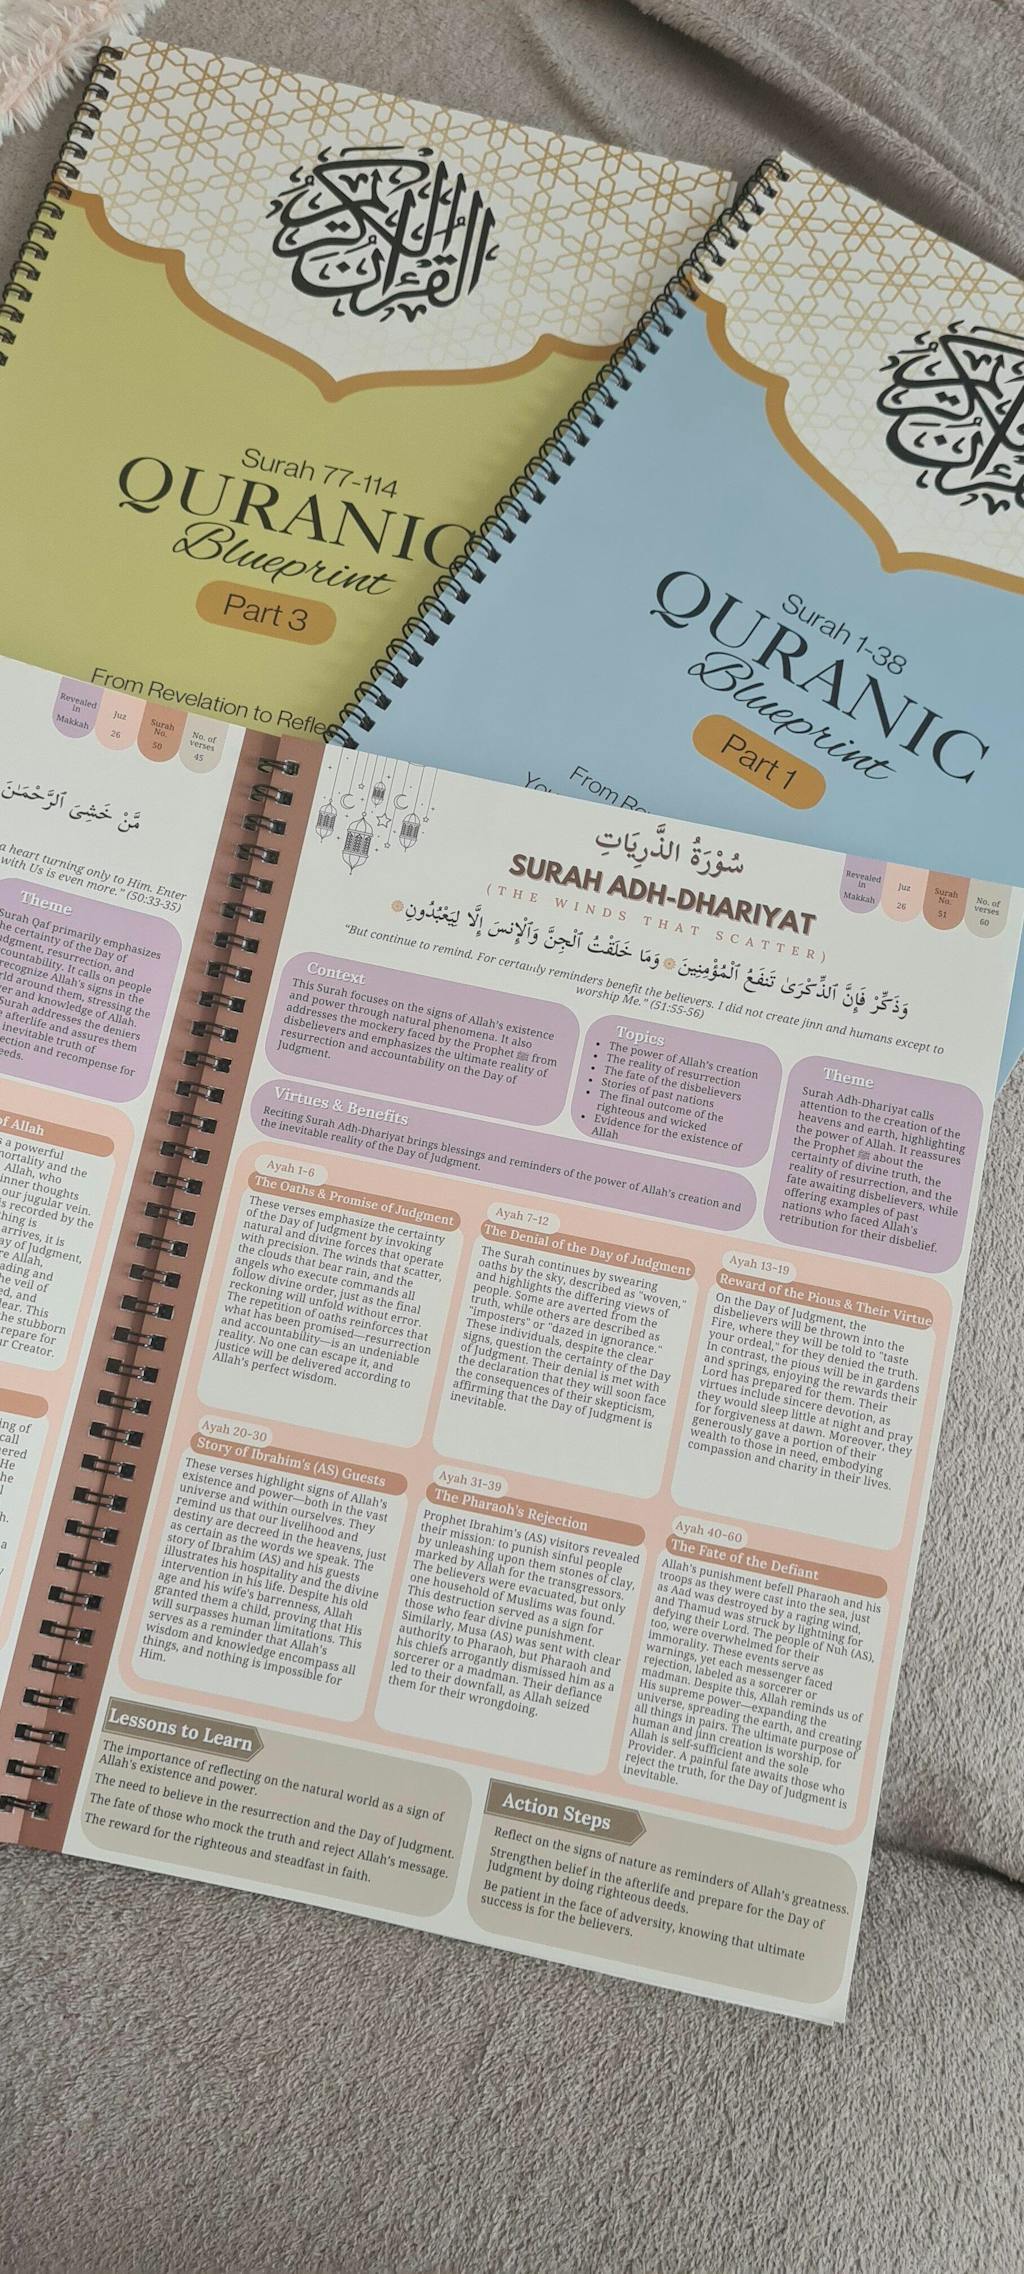 القرآن الكريم
Surah 77-114
QURANIC
Blueprint
Part 3
From Revelation to
Surah 1-38
QURANIC
Blueprint
Part 1
From
Revealed
in
Makkah
Juz
26
Surah
No.
50
No. of
verses
45
مَّنْ خَشِىَ ٱلرَّحْمَـٰنَ
a heart turning only to Him. Enter
with Us is even more." (50:33-35)
Theme
Surah Qaf primarily emphasizes
the certainty of the Day of
Judgment, resurrection, and
accountability. It calls on people
recognize Allah's signs in the
around them, stressing the
and knowledge of Allah.
Surah addresses the deniers
afterlife and assures them
inevitable truth of
and recompense for
of Allah
a powerful
mortality and the
Allah, who
inner thoughts
our jugular vein.
is recorded by the
arrives, it is
of Judgment,
Allah,
and
the veil of
and
This
the stubborn
prepare for
our Creator.
سُوْرَةُ الذّٰرِيَاتِ
SURAH ADH-DHARIYAT
(THE WINDS THAT SCATTER)
Revealed
in
Makkah
Juz
26
Surah
No.
51
No. of
verses
60
وَذَكِّرْ فَإِنَّ ٱلذِّكْرَىٰ تَنفَعُ ٱلْمُؤْمِنِينَ وَمَا خَلَقْتُ ٱلْجِنَّ وَٱلْإِنسَ إِلَّا لِيَعْبُدُونِ
"But continue to remind. For certainly reminders benefit the believers. I did not create jinn and humans except to
worship Me." (51:55-56)
Context
This Surah focuses on the signs of Allah's existence
and power through natural phenomena. It also
addresses the mockery faced by the Prophet ﷺ from
disbelievers and emphasizes the ultimate reality of
resurrection and accountability on the Day of
Judgment.
Topics
• The power of Allah's creation
• The reality of resurrection
• The fate of the disbelievers
• Stories of past nations
• The final outcome of the
righteous and wicked
• Evidence for the existence of
Allah
Theme
Surah Adh-Dhariyat calls
attention to the creation of the
heavens and earth, highlighting
the power of Allah. It reassures
the Prophet ﷺ about the
certainty of divine truth, the
reality of resurrection, and the
fate awaiting disbelievers, while
offering examples of past
nations who faced Allah's
retribution for their disbelief.
Virtues & Benefits
Reciting Surah Adh-Dhariyat brings blessings and reminders of the power of Allah's creation and
the inevitable reality of the Day of Judgment.
Ayah 1-6
The Oaths & Promise of Judgment
These verses emphasize the certainty
of the Day of Judgment by invoking
natural and divine forces that operate
with precision. The winds that scatter,
the clouds that bear rain, and the
angels who execute commands all
follow divine order, just as the final
reckoning will unfold without error.
The repetition of oaths reinforces that
what has been promised—resurrection
and accountability—is an undeniable
reality. No one can escape it, and
justice will be delivered according to
Allah's perfect wisdom.
Ayah 7-12
The Denial of the Day of Judgment
The Surah continues by swearing
oaths by the sky, described as "woven,"
and highlights the differing views of
people. Some are averted from the
truth, while others are described as
"imposters" or "dazed in ignorance."
These individuals, despite the clear
signs, question the certainty of the Day
of Judgment. Their denial is met with
the declaration that they will soon face
the consequences of their skepticism,
affirming that the Day of Judgment is
inevitable.
Ayah 13-19
Reward of the Pious & Their Virtue
On the Day of Judgment, the
disbelievers will be thrown into the
Fire, where they will be told to "taste
your ordeal," for they denied the truth.
In contrast, the pious will be in gardens
and springs, enjoying the rewards their
Lord has prepared for them. Their
virtues include sincere devotion, as
they would sleep little at night and pray
for forgiveness at dawn. Moreover, they
generously gave a portion of their
wealth to those in need, embodying
compassion and charity in their lives.
Ayah 20-30
Story of Ibrahim's (AS) Guests
These verses highlight signs of Allah's
existence and power—both in the vast
universe and within ourselves. They
remind us that our livelihood and
destiny are decreed in the heavens, just
as certain as the words we speak. The
story of Ibrahim (AS) and his guests
illustrates his hospitality and the divine
intervention in his life. Despite his old
age and his wife's barrenness, Allah
granted them a child, proving that His
will surpasses human limitations. This
serves as a reminder that Allah's
wisdom and knowledge encompass all
things, and nothing is impossible for
Him.
Ayah 31-39
The Pharaoh's Rejection
Prophet Ibrahim's (AS) visitors revealed
their mission: to punish sinful people
by unleashing upon them stones of clay,
marked by Allah for the transgressors.
The believers were evacuated, but only
one household of Muslims was found.
This destruction served as a sign for
those who fear divine punishment.
Similarly, Musa (AS) was sent with clear
authority to Pharaoh, but Pharaoh and
his chiefs arrogantly dismissed him as a
sorcerer or a madman. Their defiance
led to their downfall, as Allah seized
them for their wrongdoing.
Ayah 40-60
The Fate of the Defiant
Allah's punishment befell Pharaoh and his
troops as they were cast into the sea, just
as Aad was destroyed by a raging wind,
and Thamud was struck by lightning for
defying their Lord. The people of Nuh (AS),
too, were overwhelmed for their
immorality. These events serve as
warnings, yet each messenger faced
rejection, labeled as a sorcerer or
madman. Despite this, Allah reminds us of
His supreme power—expanding the
universe, spreading the earth, and creating
all things in pairs. The ultimate purpose of
human and jinn creation is worship, for
Allah is self-sufficient and the sole
Provider. A painful fate awaits those who
reject the truth, for the Day of Judgment is
inevitable.
Lessons to Learn
The importance of reflecting on the natural world as a sign of
Allah's existence and power.
The need to believe in the resurrection and the Day of Judgment.
The fate of those who mock the truth and reject Allah's message.
The reward for the righteous and steadfast in faith.
Action Steps
Reflect on the signs of nature as reminders of Allah's greatness.
Strengthen belief in the afterlife and prepare for the Day of
Judgment by doing righteous deeds.
Be patient in the face of adversity, knowing that ultimate
success is for the believers.